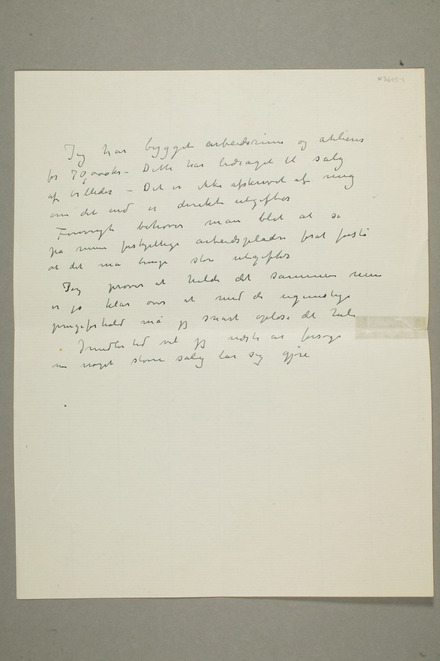 Jeg har bygget arbeidsrum og atelierer
for 70,000 kr – Dette har bidraget til salg
af billeder – Det er ikke afskrevet af mig
om det end er direkte utgifter
Forøvrigt behøver man blot at se
på mine forskjellige arbeidspladse for at forstå
at det må bringe store utgifter
Jeg prøver at holde det sammen men
er jo klar over at med de ugunstige
pengeforhold må jeg snart opløse det hele
Imidlertid vil jeg næste år forsøge
om noget større salg lar sig gjøre